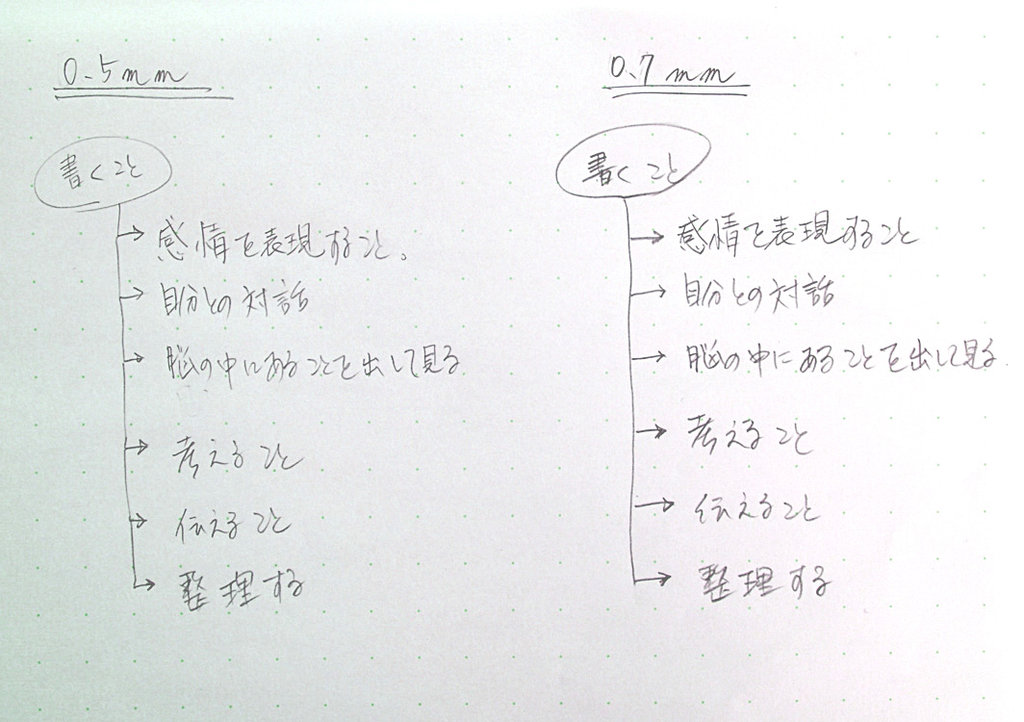 0.5mm
書くこと
感情を表現すること。
自分との対話
脳の中にあることを出して見る
考えること
伝えること
整理する
0.7mm
書くこと
感情を表現すること
自分との対話
脳の中にあることを出して見る
考えること
伝えること
整理する